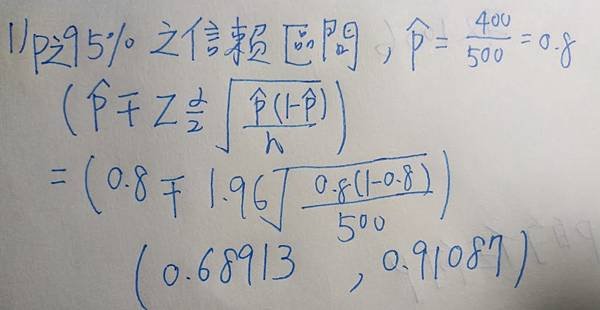 1) p之95% 之信賴區間, p̂ = 400/500 = 0.8
(p̂ ∓ Z α/2 √(p̂(1-p̂)/n))
= (0.8 ∓ 1.96 √(0.8(1-0.8)/500))
(0.68913 , 0.91087)